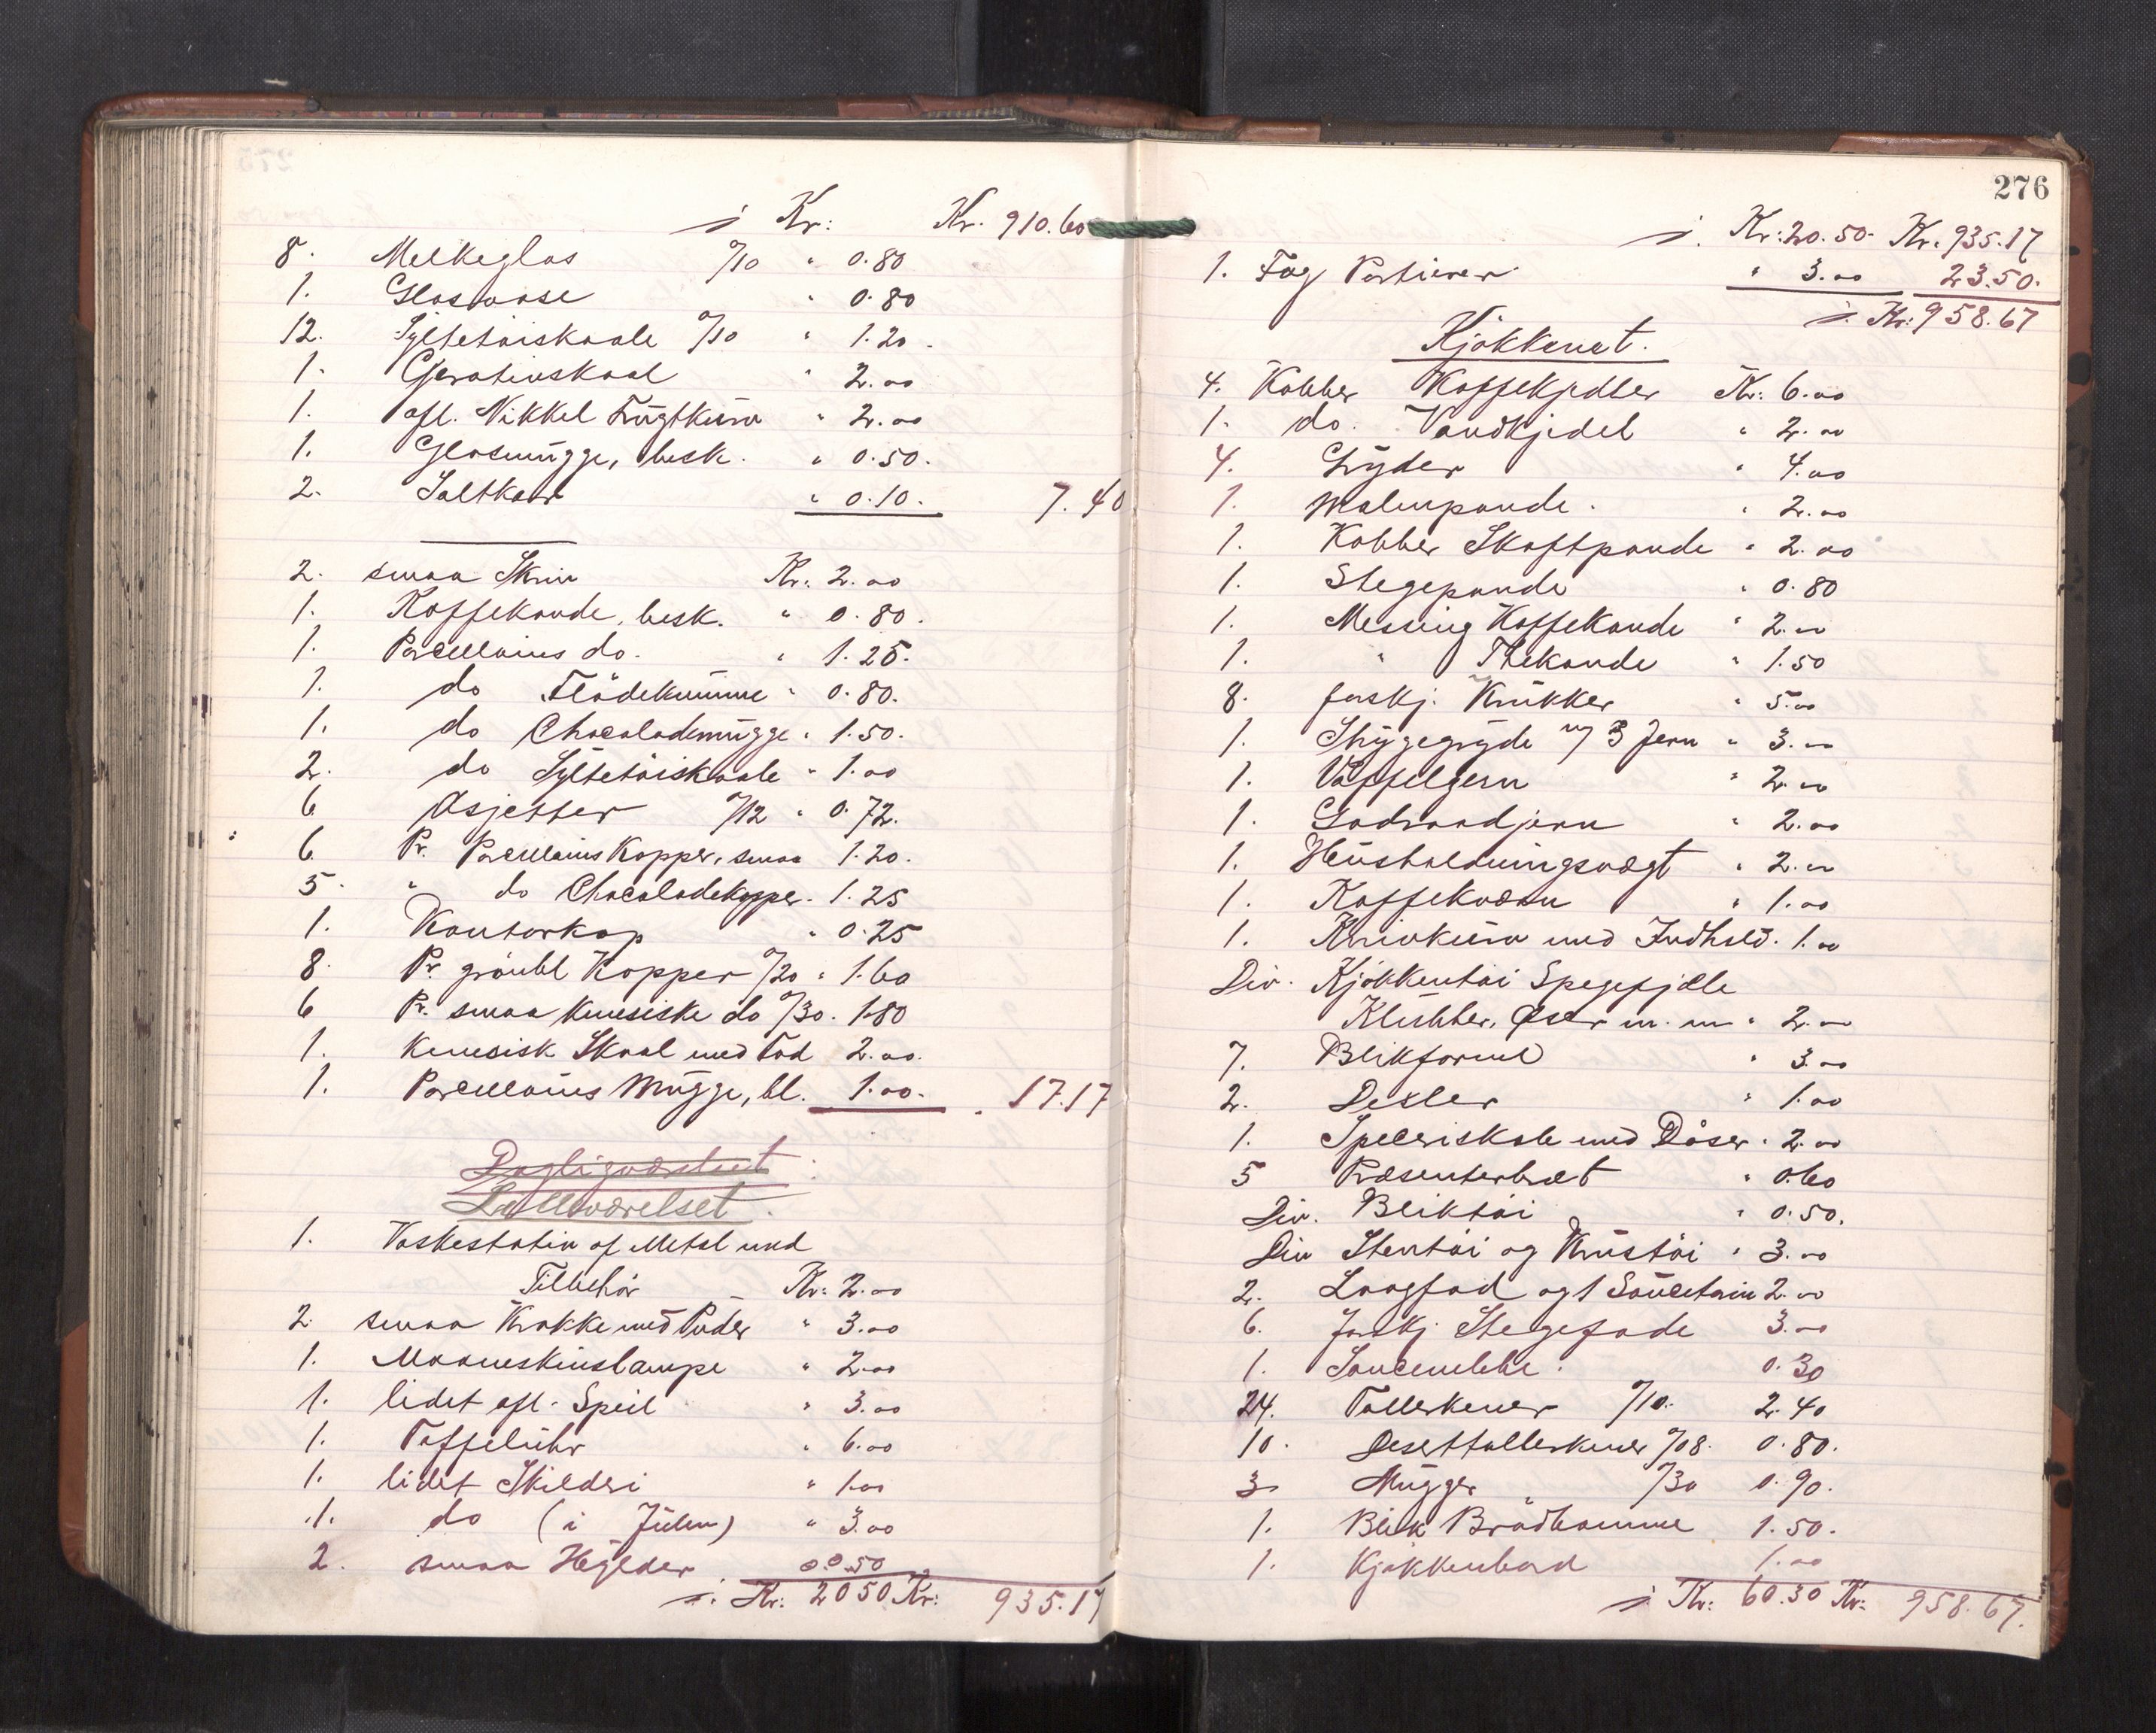 i Kr: Kr. 910.60
8. Melkeglas a/10 " 0.80
1. Glasvase " 0.80
12. Syltetöiskaale a/10 " 1.20.
1. Gelatinskaal " 2.00
1. ofl. Nikkel Frugtkurv " 2.00
1. Glasmugge, besk. " 0.50.
2. Saltkar " 0.10. 7.40
2. smaa Skrin Kr. 2.00
1. Kaffekande, besk. " 0.80.
1. Porcellains do. " 1.25.
1. do Flödekumme " 0.80.
1. do Chocolademugge " 1.50.
2. do Syltetöiskaale " 1.00
6 Asjetter a/12 " 0.72.
6. Pr. Porcellains Kopper, smaa 1.20.
5. " do Chocoladekopper. 1.25
1. Kontorkop " 0.25
8. Pr. grönbl Kopper a/20 " 1.60
6 Pr. smaa kinesiske do a/30. 1.80
1. kinesisk Skaal med Fad 2.00.
1. Porcellains Mugge, bl. 1.00. 17.17
Dagligværelset
Lilleværelset.
1. Vaskestativ af Metal med
Tilbehör Kr. 2.00
2 smaa Krakke med Puder " 3.00
1. Maaneskinslampe " 2.00
1. lidet ofl. Speil " 3.00
1. Taffeluhr " 6.00
1. lidet Skilderi " 1.00
1. do (i Julen) " 3.00
2. smaa Hÿlder 0.50
i. Kr: 20 50 Kr: 935.17
276
i. Kr: 20.50. Kr. 935.17
1. Fag Portierer " 3.00 23.50.
i. Kr: 958.67
Kjökkenet.
4. Kobber Kaffekjedler Kr: 6.00
1. do. Vandkjedel " 2.00
4. Grÿder " 4.00
1. Malmpande. " 2.00
1. Kobber Skaftpande " 2.00
1. Stegepande " 0.80
1. Messing Kaffekande " 2.00
1. " Thekande " 1.50
8. forskj. Krukker " 5.00
1. Strÿgegrÿde m/ 3 Jern " 3.00
1. Vaffelgern " 2.00
1. Godraadjern " 2.00
1. Husholdningsvægt " 2.00
1. Kaffekværn " 1.00
1. Knivkurv med Indhold. 1.00
Div. Kjökkentöi Spegefjæle
Klubber, Øser m. m " 2.00
7. Blikforme " 3.00
2. Dexler " 1.00
1. Speceriskab med Dåser. 2.00
5 Præsenterbræt " 0.60
Div. Bliktöi " 0.50.
Div Stentöi og Krustöi " 3.00
2. Langfad og 1 Saucetérin 2.00
6. forskj Stegefade 3.00
1. Saucenebbe. 0.30
24. Tallerkener a/10. 2.40
10. Deserttallerkener a/08. 0.80.
3 Mugger a/30 0.90.
1. Blik Brödtromme 1.50.
1. Kjökkenbord 1.00
i. Kr: 60.30 Kr: 958.67.